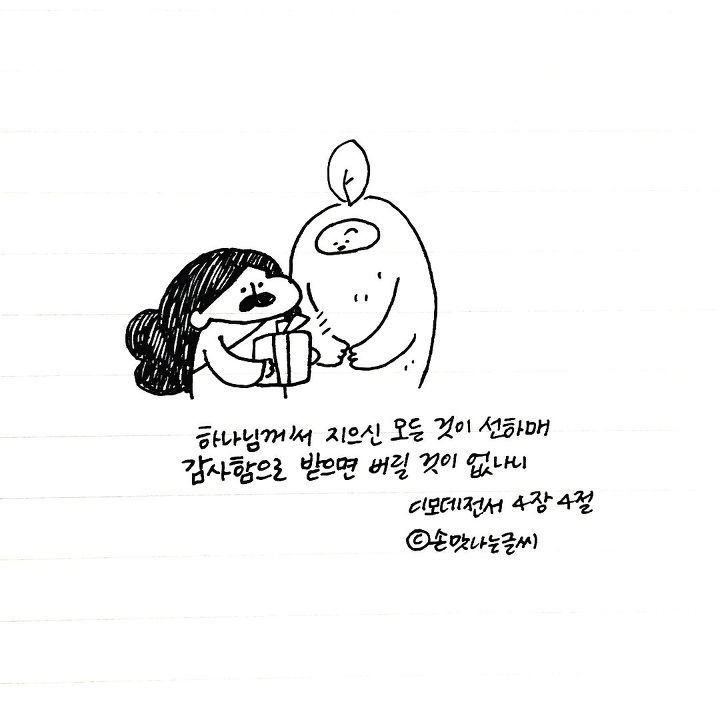 하나님께서 지으신 모든 것이 선하매
감사함으로 받으면 버릴 것이 없나니
디모데전서 4장 4절
©손맛나는글씨